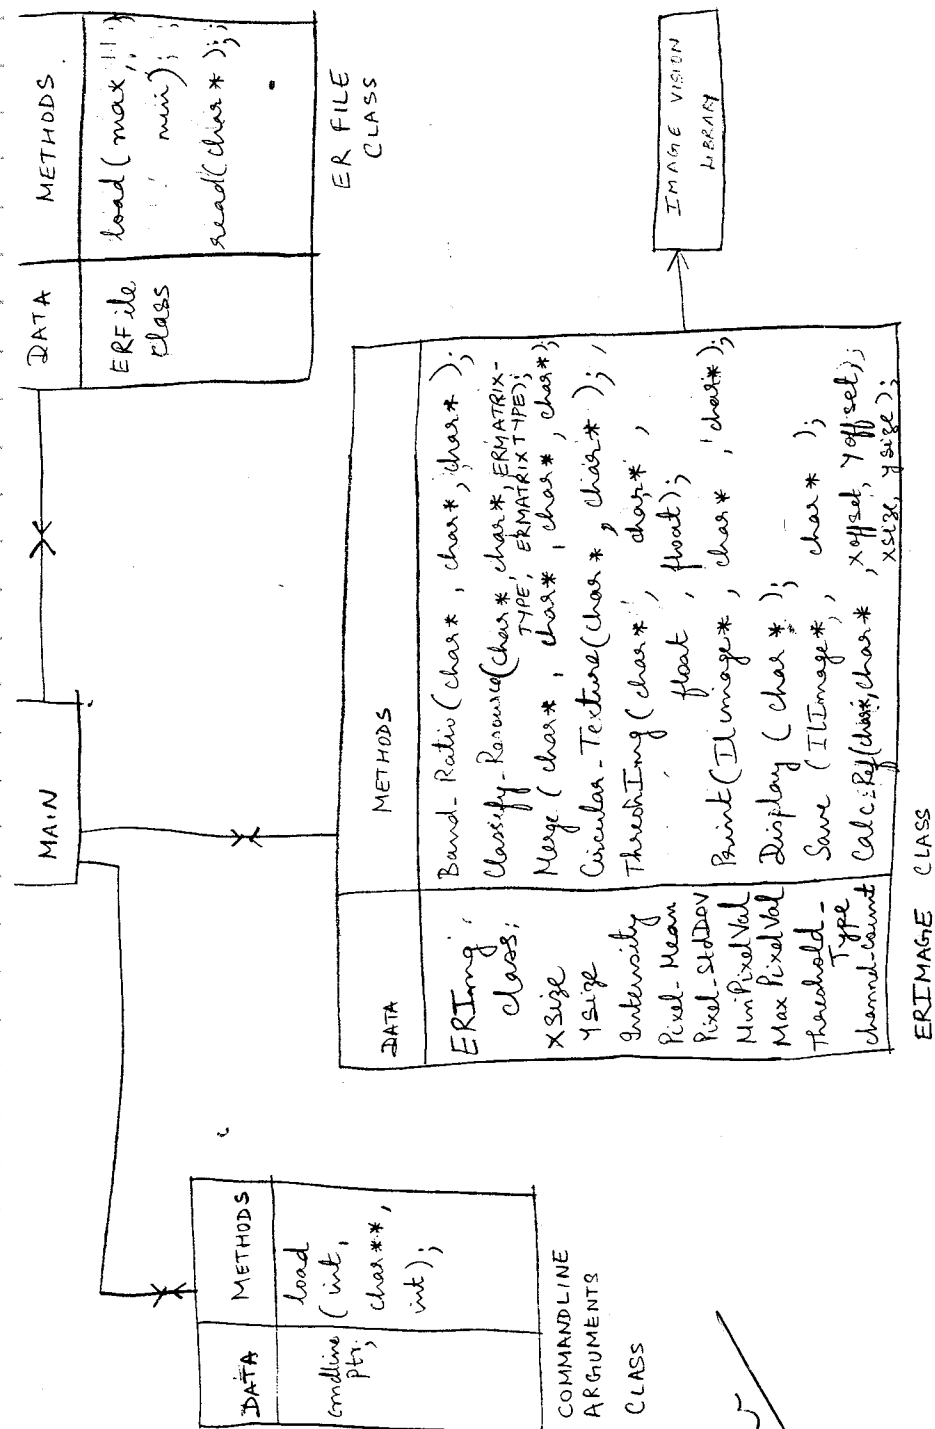 MAIN
DATA
METHODS
cmdline
Ptr;
load
(int,
char**,
int);
COMMANDLINE
ARGUMENTS
CLASS
DATA
METHODS
ERImg
class;
XSize
YSize
Intensity
Pixel_Mean
Pixel_StdDev
MinPixelVal
MaxPixelVal
Threshold_
Type
channel_count
Band_Ratio(char*, char*, char*, char*);
Classify_Resource(char*, char*, ERMATRIX-
TYPE, ERMATRIXTYPE);
Merge(char*, char*, char*, char*, char*);
Circular_Texture(char*, char*);
ThreshImg(char*, char*,
float, float);
Print(ILimage*, char*, char*);
Display(char*);
Save(ILImage*, char*);
Calc_Ref(char*, char*, xoffset, yoffset,
xsize, ysize);
ERIMAGE CLASS
DATA
METHODS
ERFile
class
load(max,
min);
read(char*);
ER FILE
CLASS
IMAGE VISION
LIBRARY